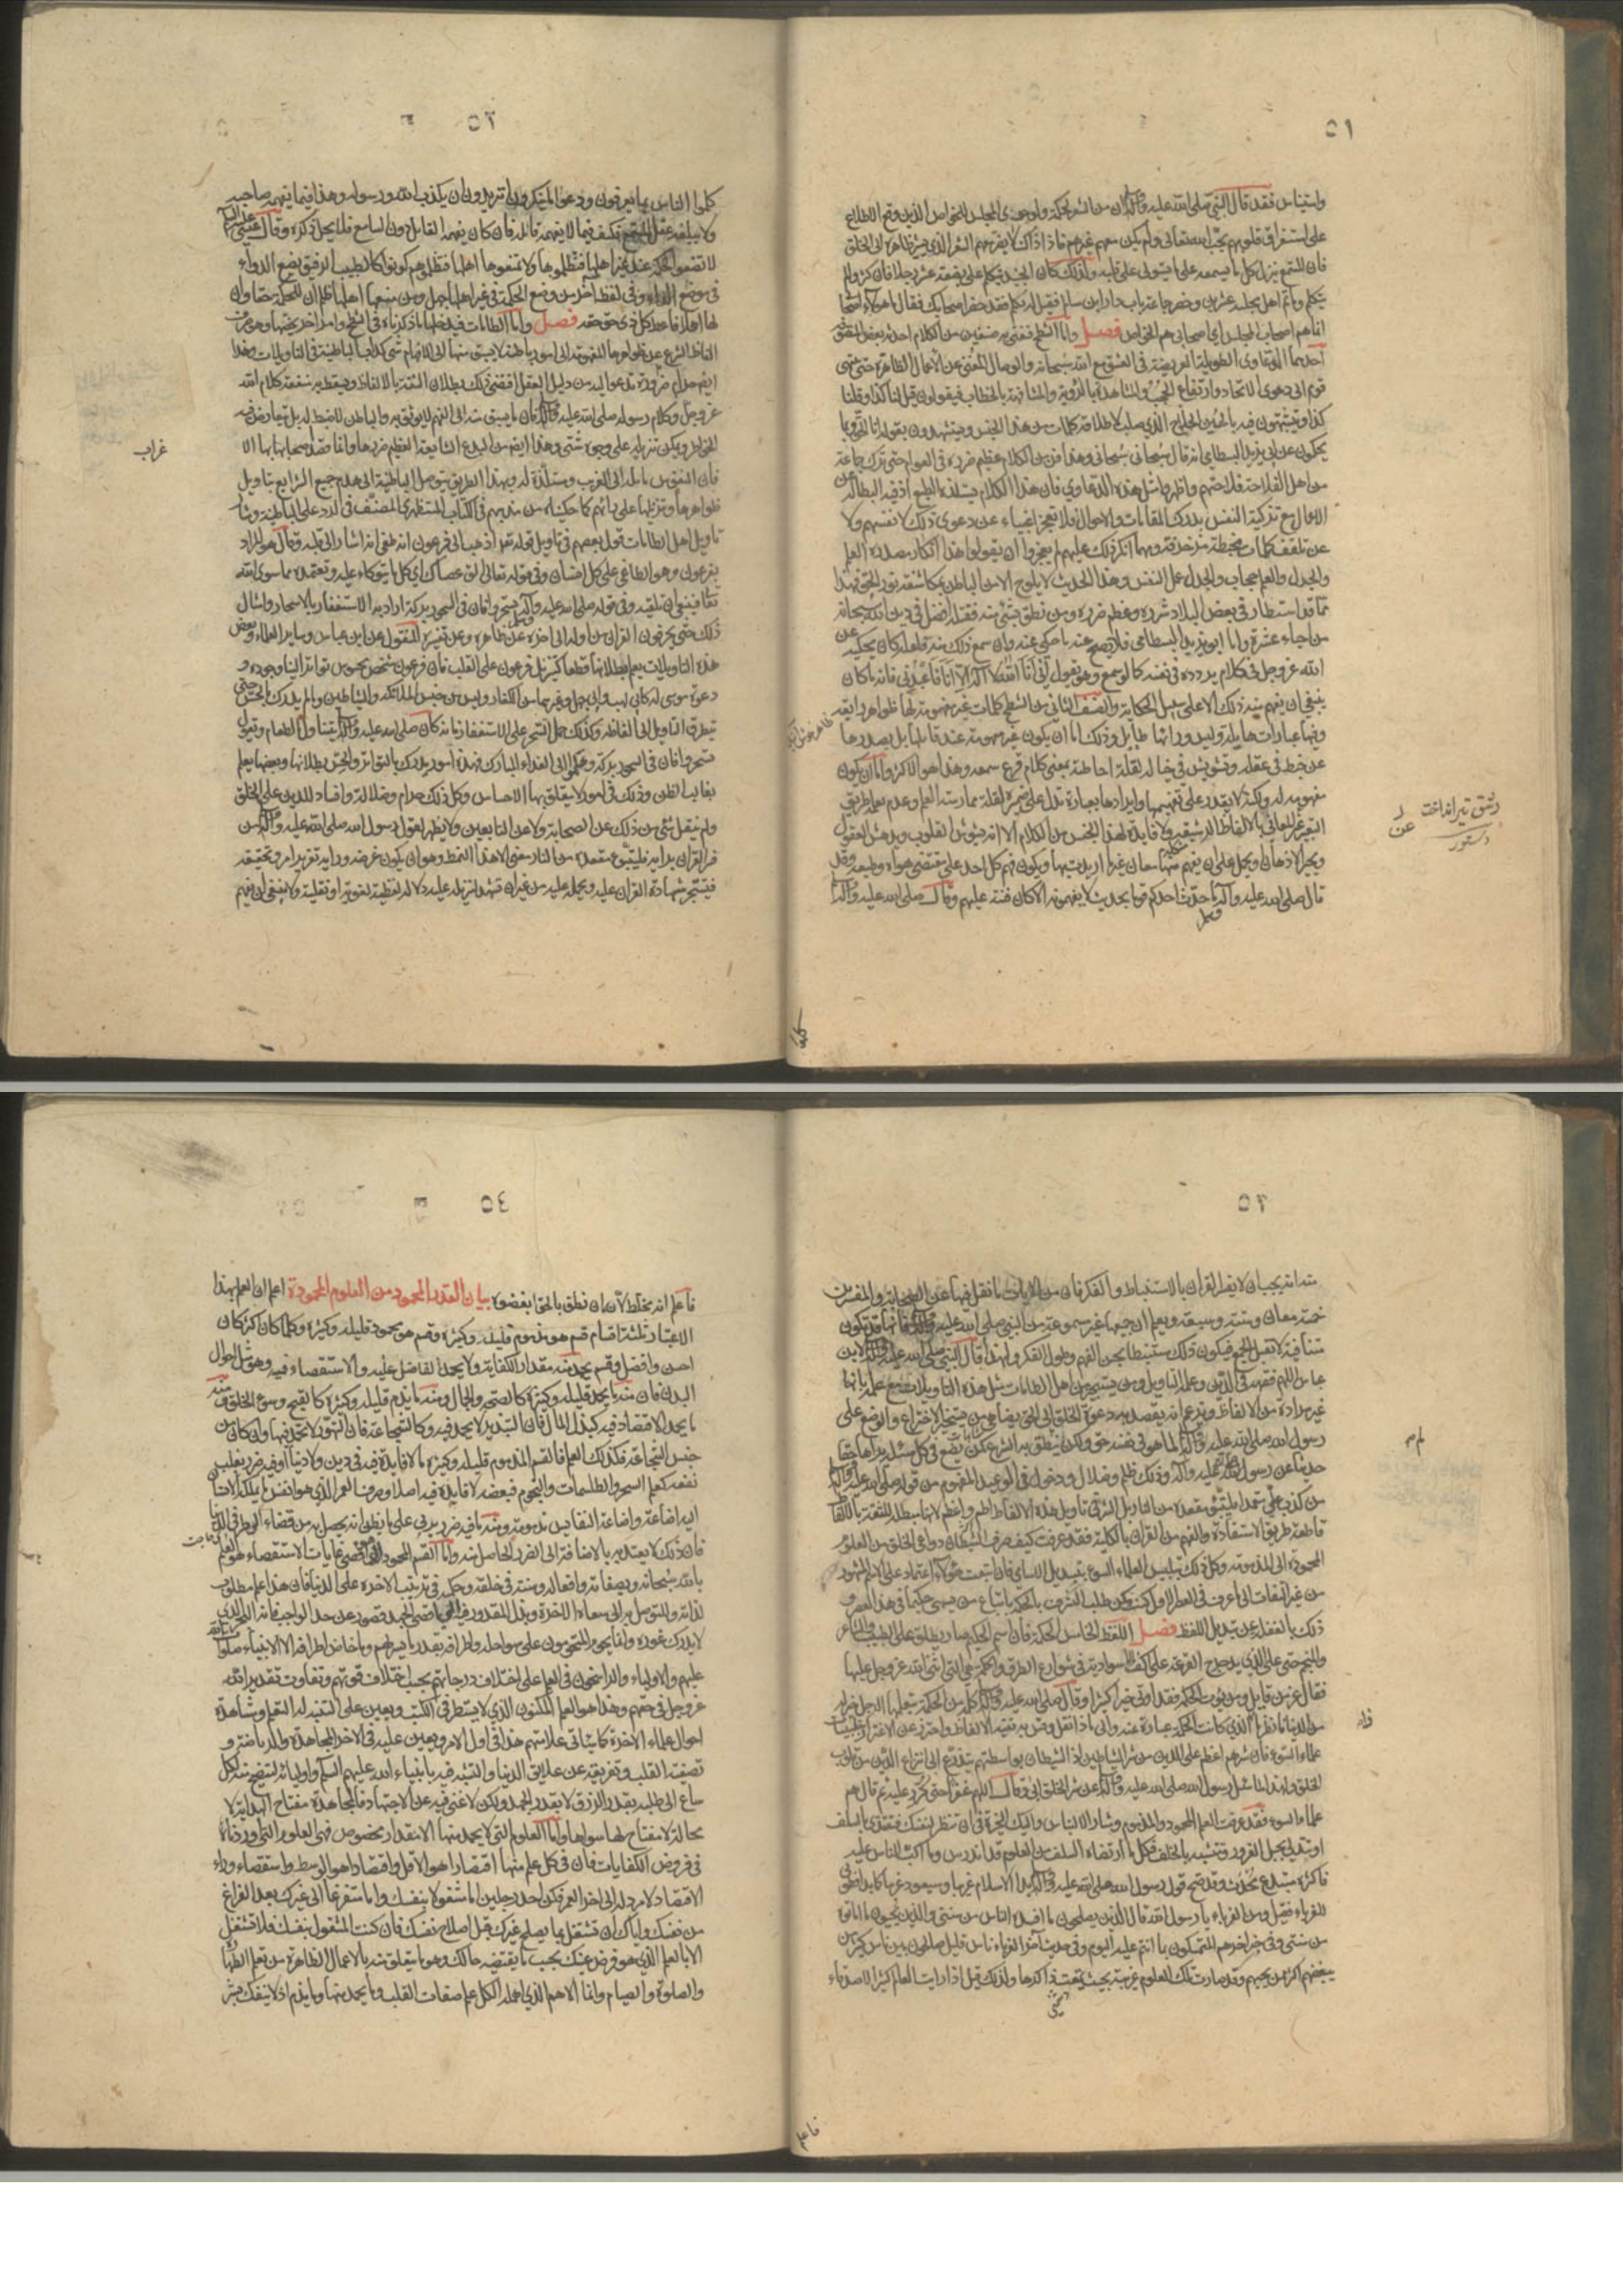 ٥١
واستيناس فقد قال النبي صلى الله عليه وآله ان من الشعر لحكمة ولو حوى المجلس الخواص الذين وقع الاطلاع
على استغراق قلوبهم بحب الله تعالى ولم يكن معهم غيرهم فاذا ذاك لا يضر معهم الشعر الذي يشير ظاهره الى الخلق
فان المستمع ينزل كل ما يسمعه على ما يستولى على قلبه ولذلك كان الجنيد يتكلم على بضعة عشر رجلا فان كثروا لم
يتكلم وما تم اهل مجلسه عشرين وحضر جماعة باب دار ابن سالم فقيل له تكلم فقد حضر اصحابك فقال ما هؤلاء اصحابي
انما هم اصحاب المجلس اي اصحابي هم الخواص فصل واما الشطح فنعني به صنفين من الكلام احدثه بعض المتصوفة
احدهما الدعاوى الطويلة العريضة في العشق مع الله سبحانه والوصال المغني عن الاعمال الظاهرة حتى ينتهى
قوم الى دعوى الاتحاد وارتفاع الحجب والمشاهدة بالرؤية والمشافهة بالخطاب فيقولون قيل لنا كذا وقلنا
كذا ويتشبهون فيه بالحسين الحلاج الذي صلب لاطلاقه كلمات من هذا الجنس ويستشهدون بقوله انا الحق وبما
يحكون عن ابي يزيد البسطامي انه قال سبحاني سبحاني وهذا فن من الكلام عظيم ضرره في العوام حتى ترك جماعة
من اهل الفلاحة فلاحتهم واظهروا مثل هذه الدعاوي فان هذا الكلام يستلذه الطبع اذ فيه البطالة عن
الاعمال مع تزكية النفس بدرك المقامات والاحوال فلا تعجز الاغبياء عن دعوى ذلك لانفسهم ولا
عن تلقف كلمات مخبطة مزخرفة ومهما انكر ذلك عليهم لم يعجزوا ان يقولوا هذا انكار مصدره العلم
والجدل والعلم حجاب والجدل عمل النفس وهذا الحديث لا يلوح الا من الباطن بمكاشفة نور الحق فهذا
مما قد استطار في بعض البلاد شرره وعظم ضرره ومن نطق بشئ منه فقتله افضل في دين الله سبحانه
من احياء عشرة واما ابو يزيد البسطامي فلا يصح عنه ما حكى عنه وان سمع ذلك منه فلعله كان يحكيه عن
الله عز وجل في كلام يردده في نفسه كما لو سمع وهو يقول اني انا الله لا اله الا انا فاعبدني فانه ما كان
ينبغي ان يفهم منه ذلك الا على سبيل الحكاية والصنف الثاني من الشطح كلمات غير مفهومة لها ظواهر رايقة
وفيها عبارات هايلة وليس ورائها طايل وذلك اما ان يكون غير مفهومة عند قايلها بل يصدرها
عن خبط في عقله وتشويش في خياله لقلة احاطته بمعنى كلام قرع سمعه وهذا هو الاكثر واما ان يكون
مفهومة له ولكنه لا يقدر على تفهيمها وايرادها بعبارة تدل على ضميره لقلة ممارسته العلم وعدم تعلمه طريق
التعبير عن المعاني بالالفاظ الرشيقة ولا فايدة لهذا الجنس من الكلام الا انه يشوش القلوب ويدهش العقول
ويحير الاذهان ويحمل على ان يفهم منها معان غير اريدت بها ويكون فهم كل احد على مقتضى هواه وطبعه وقد
قال صلى الله عليه وآله وسلم ما حدث احدكم قوما بحديث لا يفهمونه الا كان فتنة عليهم وقال صلى الله عليه وآله
رشق تير انداخت
دستور
كلموا
٥٢
كلموا الناس بما يعرفون ودعوا ما ينكرون اتريدون ان يكذب الله ورسوله وهذا فيما يفهمه صاحبه
ولا يبلغه عقل المستمع فكيف فيما لا يفهمه قائله فان كان يفهمه القائل دون السامع فلا يحل ذكره وقال عيسى عليه السلام
لا تضعوا الحكمة عند غير اهلها فتظلموها ولا تمنعوها اهلها فتظلموهم كونوا كالطبيب الرفيق يضع الدواء
في موضع الداء وفي لفظ آخر من وضع الحكمة في غير اهلها جهل ومن منعها اهلها ظلم ان للحكمة حقا وان
لها اهلا فاعط كل ذي حق حقه فصل واما الطامات فيدخلها ما ذكرناه في الشطح وامر آخر يخصها وهو صرف
الفاظ الشرع عن ظواهرها المفهومة الى امور باطنة لا يسبق منها الى الافهام شئ كداب الباطنية في التاويلات وهذا
ايضا حرام وضرره
عز وجل وكلام رسوله صلى الله عليه وآله فان ما يسبق منه الى الفهم لا يوثق به والباطن لا ضبط له بل تتعارض فيه
الخواطر ويمكن تنزيله على وجوه شتى وهذا ايضا من البدع الشايعة العظيم ضررها وانما قصد اصحابها بها الا
فان النفوس مائلة الى الغريب ومستلذة له وبهذا الطريق توصل الباطنية الى هدم جميع الشرايع بتاويل
ظواهرها وتنزيلها على رأيهم كما حكيناه من مذهبهم في الكتاب المستظهري المصنف في الرد على الباطنية ومثال
تاويل اهل الطامات قول بعضهم في تاويل قوله تعالى اذهب الى فرعون انه طغى انه اشار الى قلبه وقال هو المراد
بفرعون وهو الطاغي على كل انسان وفي قوله تعالى الق عصاك اي كل ما يتوكاء عليه ويعتمده مما سوى الله
تعالى فينبغي ان تلقيه وفي قوله صلى الله عليه وآله وسلم تسحروا فان في السحور بركة اراد به الاستغفار بالاسحار وامثال
ذلك حتى يحرفون القران من اوله الى اخره عن ظاهره وعن تفسيره المنقول عن ابن عباس وساير العلماء وبعض
هذه التاويلات يعلم بطلانها قطعا كتنزيل فرعون على القلب فان فرعون شخص محسوس تواتر الينا وجوده و
دعوة موسى له كابي لهب وابي جهل وغيرهما من الكفار وليس من جنس الملائكة والشياطين وما لم يدرك بالحس حتى
يتطرق التاويل الى الفاظه وكذلك حمل السحور على الاستغفار فانه كان صلى الله عليه وآله يتناول الطعام ويقول
تسحروا فان في السحور بركة وهلموا الى الغداء المبارك فهذه امور يدرك بالتواتر والحس بطلانها وبعضها يعلم
بغالب الظن وذلك في امور لا يتعلق بها الاحساس وكل ذلك حرام وضلالة وافساد للدين على الخلق
ولم ينقل شئ من ذلك عن الصحابة ولا عن التابعين ولا يظهر لقول رسول الله صلى الله عليه وآله من
فسر القران برايه فليتبوء مقعده من النار معنى الا هذا النمط وهو ان يكون غرضه ورايه تقرير امر وتحقيقه
فيستجر شهادة القران عليه ويحمله عليه من غير ان تشهد لتنزيله عليه دلالة لفظية لغوية او نقلية ولا ينبغي ان يفهم
غراب
٥٣
منه انه يجب ان لا يفسر القران بالاستنباط والفكر فان من الايات ما نقل فيها عن الصحابة والمفسرين
خمسة معان وستة وسبعة ويعلم ان جميعها غير مسموعة من النبي صلى الله عليه وآله فانها قد تكون
متنافية لا تقبل الجمع فيكون ذلك مستنبطا بحسن الفهم وطول الفكر ولهذا قال النبي صلى الله عليه وآله لابن
عباس اللهم فقهه في الدين وعلمه التاويل ومن يستجيز من اهل الطامات مثل هذه التاويلات مع علمه بانها
غير مرادة من الالفاظ ويزعم انه يقصد به دعوة الخلق الى الحق يضاهي من يستجيز الاختراع والوضع على
رسول الله صلى الله عليه وآله لما هو في نفسه حق ولكن لم ينطق به الشرع كمن يضع في كل مسئلة يراها حقا
حديثا عن رسول الله صلى الله عليه وآله وذلك ظلم وضلال ودخول في الوعيد المفهوم من قوله صلى الله عليه وآله
من كذب علي متعمدا فليتبوء مقعده من النار بل الشر في تاويل هذه الالفاظ اطم واعظم لانها مبطلة للثقة بالالفاظ
قاطعة طريق الاستفادة والفهم من القران بالكلية فقد عرفت كيف صرف الشيطان دواعي الخلق من العلوم
المحمودة الى المذمومة وكل ذلك بتلبيس العلماء السوء بتبديل الاسامي فان اتبعت هؤلاء اعتمادا على الاسم المشهور
من غير التفات الى ما عرف في العصر الاول كنت كمن طلب الشرف بالحكمة باتباع من يسمى حكيما في هذا العصر و
ذلك بالغفلة عن تبديل اللفظ فصل اللفظ الخامس الحكمة فان اسم الحكيم صار يطلق على الطبيب والشاعر
والمنجم حتى على الذي يدحرج القرعة على اكف السوادية في شوارع الطرق والحكمة هي التي اثنى الله عز وجل عليها
فقال عز من قايل ومن يؤت الحكمة فقد اوتي خيرا كثيرا وقال صلى الله عليه وآله كلمة من الحكمة يتعلمها الرجل خير له
من الدنيا فانظر ما الذي كانت الحكمة عبارة عنه والى ماذا نقل وقس به بقية الالفاظ واحترز عن الاغترار بتلبيسات
علماء السوء فان شرهم اعظم على الدين من شر الشياطين اذ الشيطان بواسطتهم يتذرع الى انتزاع الدين من قلوب
الخلق ولهذا لما سئل رسول الله صلى الله عليه وآله عن شر الخلق ابى وقال اللهم غفرا حتى كرر عليه ثم قال هم
علماء السوء فقد عرفت العلم المحمود والمذموم ومثار الالتباس واليك الخيرة في ان تنظر لنفسك فتقتدي بالسلف
او تتدلى بحبل الغرور وتتشبه بالخلف فكل ما ارتضاه السلف من العلوم قد اندرس وما اكب الناس عليه
فاكثره مبتدع محدث وقد صح قول رسول الله صلى الله عليه وآله بدا الاسلام غريبا وسيعود غريبا كما بدا فطوبى
للغرباء فقيل ومن الغرباء يا رسول الله قال الذين يصلحون ما افسد الناس من سنتي والذين يحيون ما اماتوه
من سنتي وفي خبر اخر هم المتمسكون بما انتم عليه اليوم وفي حديث آخر الغرباء ناس قليل صالحون بين ناس كثير من
يبغضهم اكثر ممن يحبهم وقد صارت تلك العلوم غريبة بحيث يمقت ذاكرها ولذلك قيل اذا رايت العالم كثير الاصدقاء
فاعلم
٥٤
فاعلم انه مخلط لانه ان نطق بالحق ابغضوه بيان القدر المحمود من العلوم المحمودة اعلم ان العلم بهذا
الاعتبار ثلثة اقسام قسم هو مذموم قليله وكثيره وقسم هو محمود قليله وكثيره وكلما كان اكثر كان
احسن وافضل وقسم يحمد منه مقدار الكفاية ولا يحمد الفاضل عليه والاستقصاء فيه وهو مثل احوال
البدن فان منه ما يحمد قليله وكثيره كالصحة والجمال ومنه ما يذم قليله وكثيره كالقبح وسوء الخلق ومنه
ما يحمد الاقتصاد فيه كبذل المال فان التبذير لا يحمد فيه وكالشجاعة فان التهور لا يحمد فيها وان كان من
جنس الشجاعة فكذلك العلم فالقسم المذموم قليله وكثيره ما لا فايدة فيه في دين ولا دنيا او فيه ضرر يغلب
نفعه كعلم السحر والطلسمات والنجوم فبعضه لا فايدة فيه اصلا وصرف العمر الذي هو انفس ما يملكه الانسان
اليه اضاعة واضاعة النفايس مذمومة ومنه ما فيه ضرر يربى على ما يظن انه يحصل به من قضاء الوطر في الدنيا
فان ذلك لا يعتد به بالاضافة الى الضرر الحاصل منه واما القسم المحمود الى اقصى غايات الاستقصاء فهو العلم
بالله سبحانه وبصفاته وافعاله وسنته في خلقه وحكمه في ترتيب الاخرة على الدنيا فان هذا علم مطلوب
لذاته وللتوسل به الى سعادة الاخرة وبذل المقدور فيه الى اقصى الجهد قصور عن حد الواجب فانه البحر الذي
لا يدرك غوره وانما يحوم المتحومون على سواحله واطرافه بقدر ما يسر لهم وما خاض اطرافه الا الانبياء صلوات الله
عليهم والاولياء والراسخون في العلم على اختلاف درجاتهم بحسب اختلاف قوتهم وتفاوت تقدير الله
عز وجل في حقهم وهذا هو العلم المكنون الذي لا يسطر في الكتب ويعين على التنبه له التعلم ومشاهدة
احوال علماء الاخرة كما سيأتي علامتهم هذا في اول الامر ويعين عليه في الاخرة المجاهدة والرياضة و
تصفية القلب وتفريغه عن علايق الدنيا والتشبه فيه بانبياء الله عليهم السلام واوليائه ليتضح منه لكل
ساع الى طلبه بقدر الرزق لا بقدر الجهد ولكن لا غنى فيه عن الاجتهاد فالمجاهدة مفتاح الهداية لا
محالة لا مفتاح لها سواها واما العلوم التي لا يحمد منها الا مقدار مخصوص فهى العلوم التي اوردناها
في فروض الكفايات فان في كل علم منها اقتصارا هو الاقل واقتصادا هو الوسط واستقصاء وراء
الاقتصاد لا مرد له الى اخر العمر فكن احد رجلين اما مشغولا بنفسك واما متفرغا الى غيرك بعد الفراغ
من نفسك واياك ان تشتغل بما يصلح غيرك قبل اصلاح نفسك فان كنت المشغول بنفسك فلا تشتغل
الا بالعلم الذي هو فرض عينك بحسب ما يقتضيه حالك وهو ما يتعلق منه بالاعمال الظاهرة من تعلم الطهارة
والصلوة والصيام وانما الاهم الذي اهمله الكل علم صفات القلب وما يحمد منها وما يذم اذ لا ينفك بشر